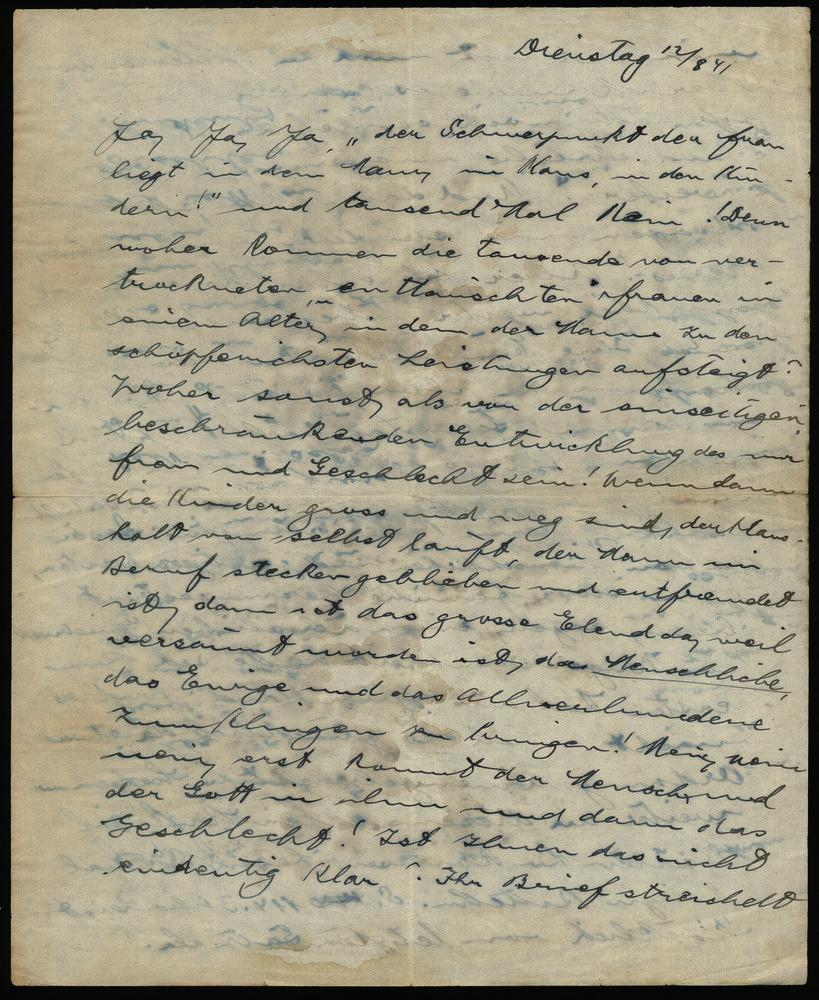 Dienstag 12/8 41
Ja, Ja, Ja, „der Schwerpunkt der frau
liegt in dem Mann, im Haus, in den Kin-
dern!" und tausend Mal Nein! Denn
woher kommen die tausende von ver-
trockneten, enttäuschten frauen in
einem Alter, in dem der Mann zu den
schöpferischsten Leistungen aufsteigt?
Woher sonst, als von der einseitigen,
beschränkenden Entwicklung des nur
frau und Geschlecht sein! Wenn dann
die Kinder gross und weg sind, der Haus-
halt von selbst läuft, der Mann im
Beruf stecken geblieben und entfremdet
ist, dann ist das grosse Elend da, weil
versäumt worden ist, das Menschliche,
das Ewige und das Allverbundene
zum Klingen zu bringen! Nein, nein
nein, erst kommt der Mensch und
der Gott in ihm und dann das
Geschlecht! Ist Ihnen das nicht
eindeutig klar? Ihr Brief streichelt